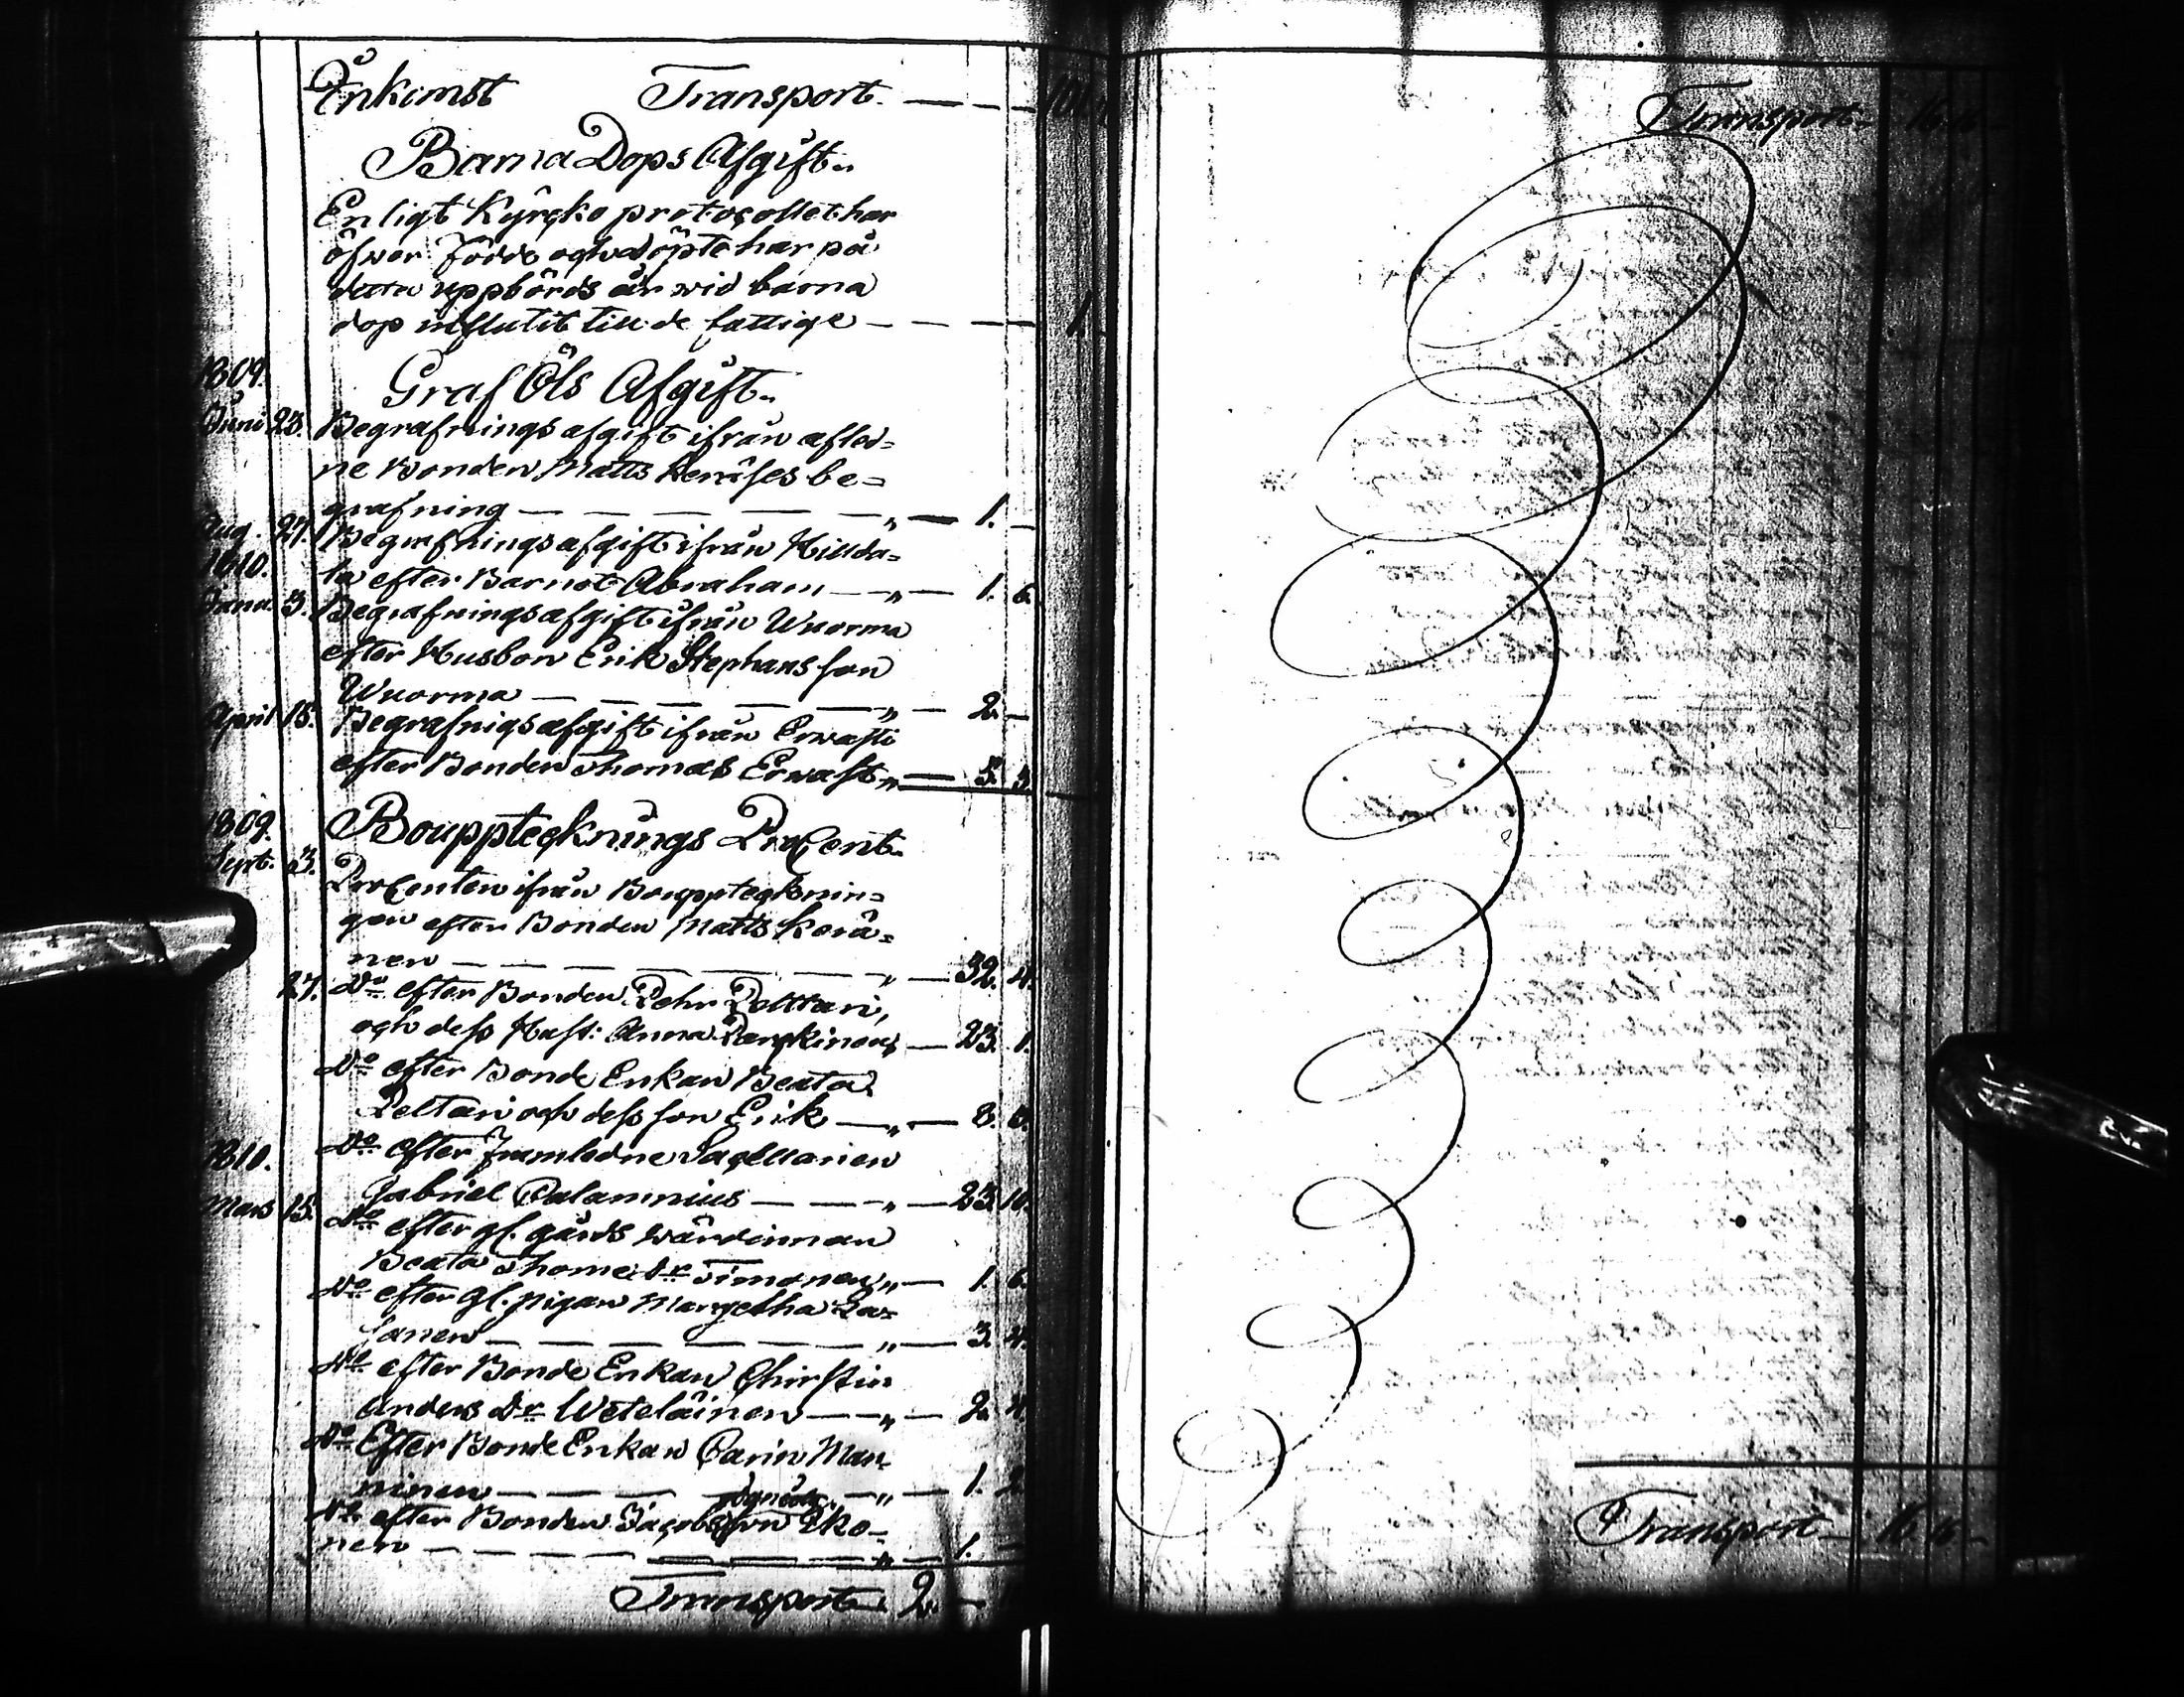 Inkomst Transport. — — — 101.
Barna Dops Afgift.
Enligt Kyrcko protocollet har
öfwer Födde och döpte har på
detta uppbörds år wid barna
dop influtit till de fattige — — — 1.
1809. Graf Öls Afgift.
Juni 23. Begrafnings afgift ifrån afled=
ne Bonden Matts Keräses be=
grafning — — — — — „ — 1. —
Aug. 27. Begrafningsafgift ifrån Hillda=
1810. la efter Barnet Abraham — „ — 1. 6.
Janu. 3. Begrafningsafgift ifrån Wuorma
efter Husbon Erik Stephansson
Wuorma — — — — „ — 2. —
April 15. Begrafnigsafgift ifrån Erwasti
efter Bonden Thomas Erwast „ — 5. 3.
1809. Boupptecknings Procent.
Sept. 3. Procenten ifrån Bouppteknin=
gen efter Bonden Matts Kerä=
nen — — — — — „ — 32. 4.
27. Do efter Bonden Pehr Pelttari,
och dess Hust: Anna — 23. 1.
Do efter Bonde Enkan Beata
Peltari och dess son Erik — „ — 8. 8.
1810. Do efter Framledne Sacellanen
Gabriel Calamnius — — „ — 23. 10.
Mars 15. Do efter gl. gårds wärdinnan
Beata Thome Dr Timonen „ — 1. 6.
Do efter gl. pigan Margetha La=
sanen — — — — — „ — 3. 4.
Do efter Bonde Enkan Chirstin
Anders Dr Weteläinen — „ — 2. 4.
Do Efter Bonde Enkan Carin Man=
ninen — — — — „ — 1. 2.
Do efter Bonden Jacob
nen — — — — — „ — 1. —
Transport 2. —
Transport — 16. 16. —
Transport — 16. 16. —